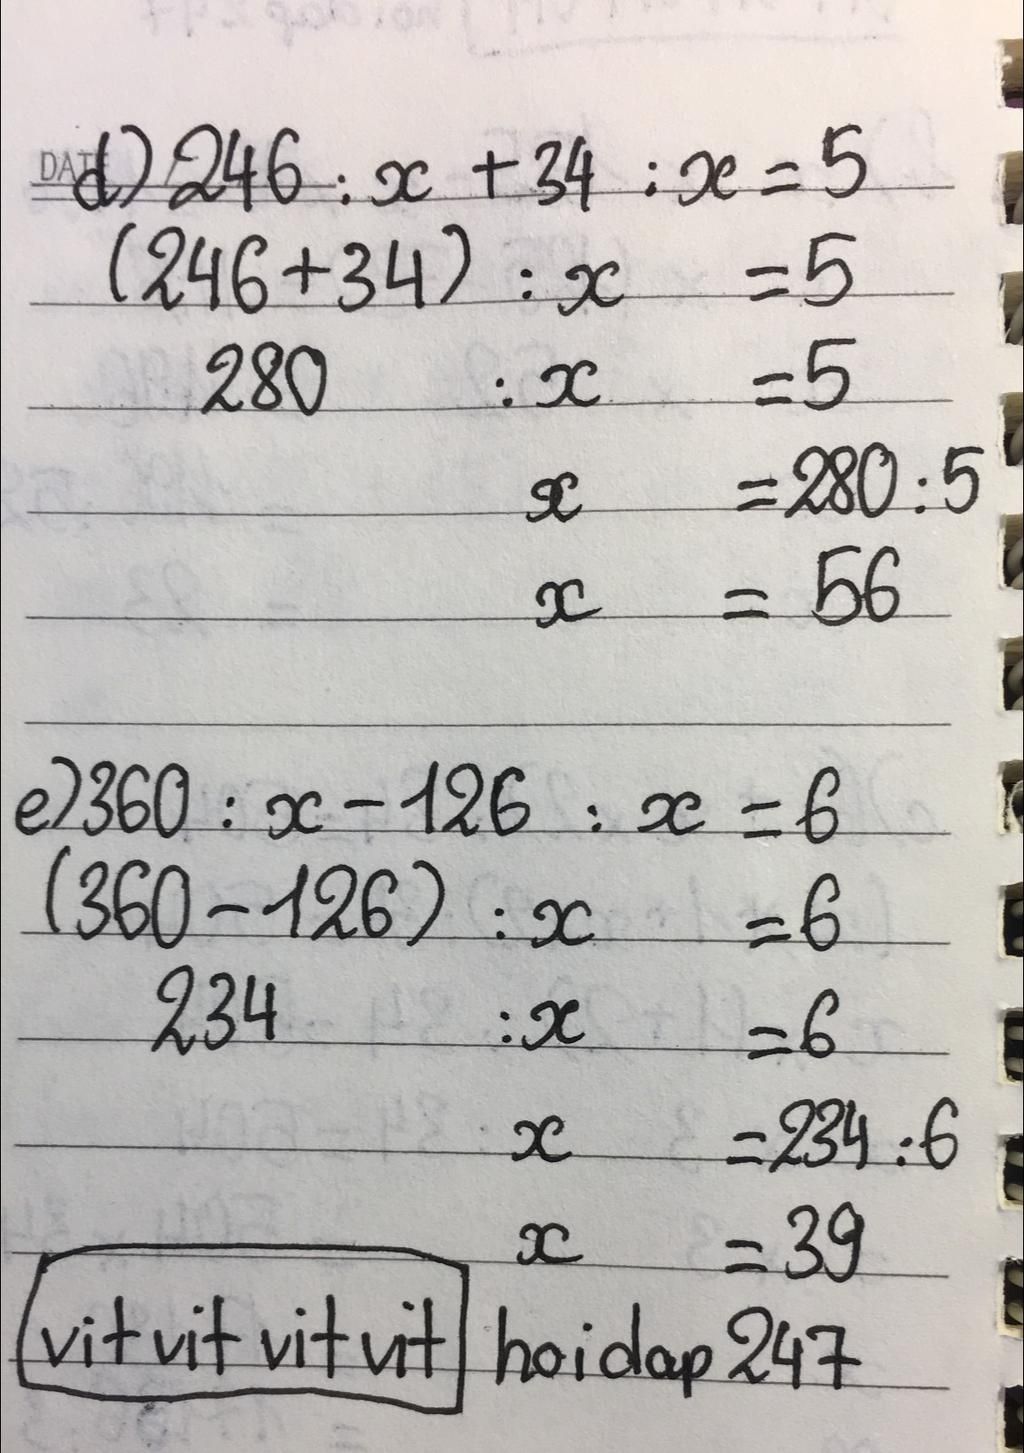 DATE
d) 246 : x + 34 : x = 5
(246+34) : x = 5
280 : x = 5
x = 280 : 5
x = 56
e) 360 : x - 126 : x = 6
(360 - 126) : x = 6
234 : x = 6
x = 234 : 6
x = 39
vitvitvitvit hoidap247